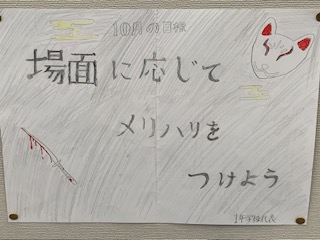 10月の目標
場面に応じて
メリハリを
つけよう
1年学級代表